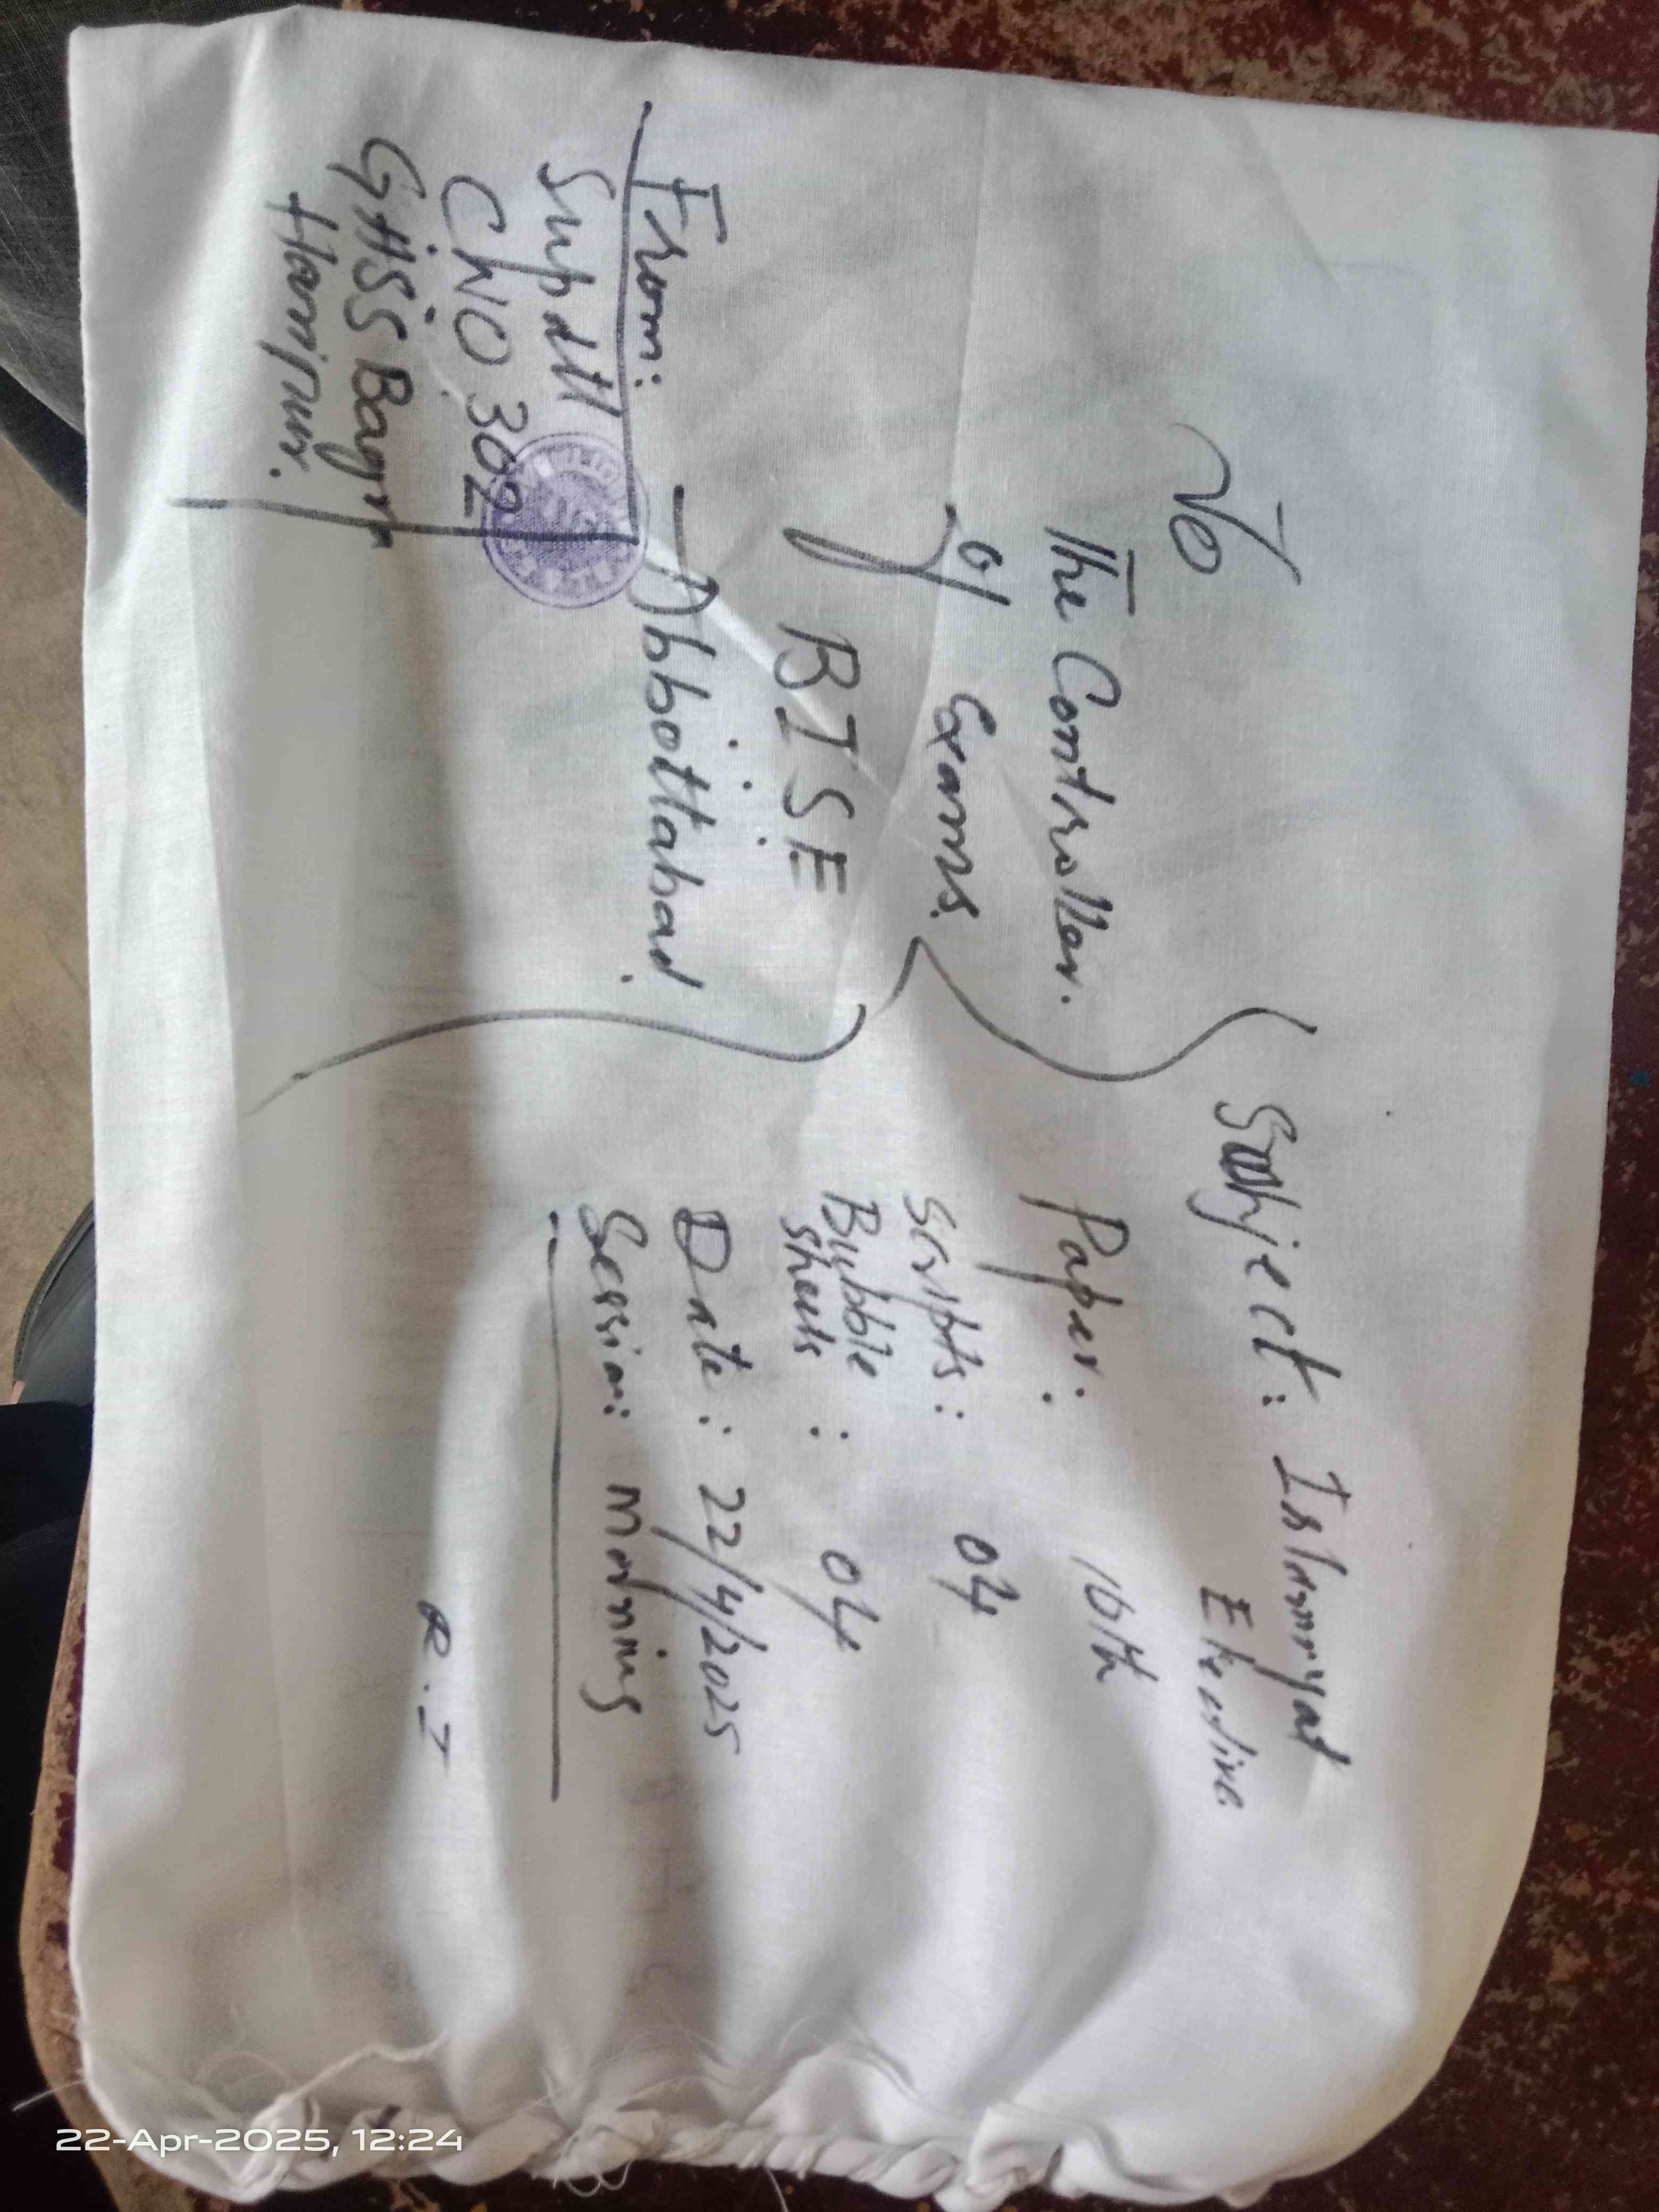 To
The Controller.
of Exams.
B.I.S.E
Abbottabad
From:
Supdtt
CNO 302
GHSS Bagra
Haripur.
Subject: Islamiyat
Elective
Paper: 10th
Scripts: 04
Bubble
Sheets : 04
Date: 22/4/2025
Session: Morning
R.I
22-Apr-2025, 12:24